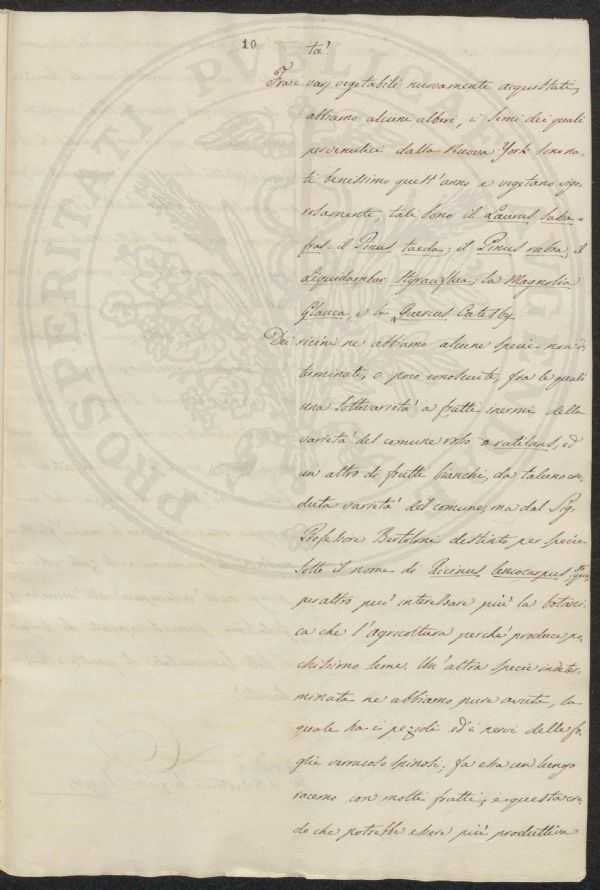 10
tà.
Fra i varj vegetabili nuovamente acquistati,
abbiamo alcuni alberi, i semi dei quali
pervenutici dalla Nuova York sono na-
ti benissimo quest'anno e vegetano vigo-
rosamente, tali sono il Laurus sasa-
fras. il Pinus taeda; il Pinus rubra, il
Liquidambar styraciflua, la Magnolia
Glauca, e la Quercus Catesby.
Dei ricini ne abbiamo alcune specie non de-
terminate, o poco conosciute, fra le quali
una sottovarietà a frutti inermi della
varietà del comune rosso o rutilans, ed
un altro di frutti bianchi, da taluno cre-
duta varietà del comune, ma dal Sig.
Professore Bertoloni distinto per specie
sotto il nome di Ricinus leucocarpus;
per altro può interessare più la botani-
ca che l'agricoltura perchè produce po-
chissimo seme. Un'altra specie indeter-
minata ne abbiamo pure avuta, la
quale ha i pezioli ed i nervi delle fo-
glie verrucoso spinosi; fa essa un lungo
racemo con molti frutti; e questa cre-
do che potrebbe essere più produttiva
PROSPERITATI PUBLICAE AUGENDAE